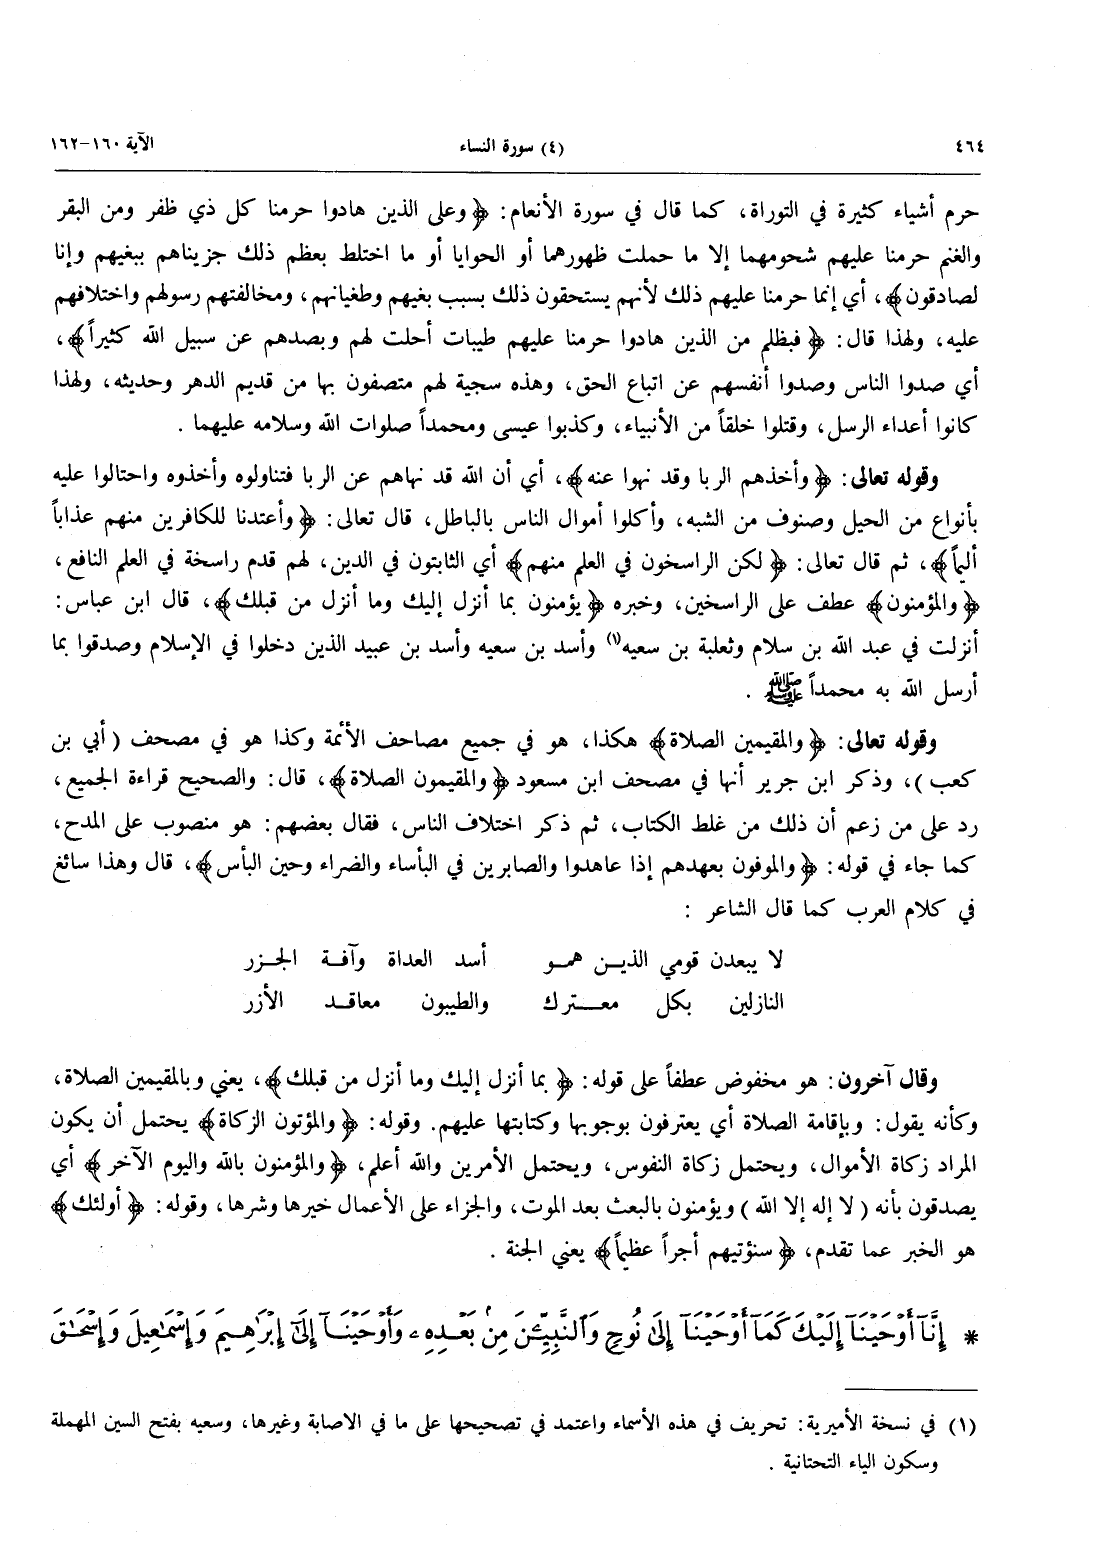 ٤٦٤ (٤) سورة النساء الآية ١٦٠-١٦٢
حرم أشياء كثيرة في التوراة، كما قال في سورة الأنعام: ﴿وعلى الذين هادوا حرمنا كل ذي ظفر ومن البقر
والغنم حرمنا عليهم شحومهما إلا ما حملت ظهورهما أو الحوايا أو ما اختلط بعظم ذلك جزيناهم ببغيهم وإنا
لصادقون﴾، أي إنما حرمنا عليهم ذلك لأنهم يستحقون ذلك بسبب بغيهم وطغيانهم، ومخالفتهم رسولهم واختلافهم
عليه، ولهذا قال: ﴿فبظلم من الذين هادوا حرمنا عليهم طيبات أحلت لهم وبصدهم عن سبيل الله كثيراً﴾،
أي صدوا الناس وصدوا أنفسهم عن اتباع الحق، وهذه سجية لهم متصفون بها من قديم الدهر وحديثه، ولهذا
كانوا أعداء الرسل، وقتلوا خلقاً من الأنبياء، وكذبوا عيسى ومحمداً صلوات الله وسلامه عليهما .
وقوله تعالى: ﴿وأخذهم الربا وقد نهوا عنه﴾، أي أن الله قد نهاهم عن الربا فتناولوه وأخذوه واحتالوا عليه
بأنواع من الحيل وصنوف من الشبه، وأكلوا أموال الناس بالباطل، قال تعالى: ﴿وأعتدنا للكافرين منهم عذاباً
أليماً﴾، ثم قال تعالى: ﴿لكن الراسخون في العلم منهم﴾ أي الثابتون في الدين، لهم قدم راسخة في العلم النافع،
﴿والمؤمنون﴾ عطف على الراسخين، وخبره ﴿يؤمنون بما أنزل إليك وما أنزل من قبلك﴾، قال ابن عباس:
أنزلت في عبد الله بن سلام وثعلبة بن سعيه(١) وأسد بن سعيه وأسد بن عبيد الذين دخلوا في الإسلام وصدقوا بما
أرسل الله به محمداً ﷺ .
وقوله تعالى: ﴿والمقيمين الصلاة﴾ هكذا، هو في جميع مصاحف الأئمة وكذا هو في مصحف (أبي بن
كعب)، وذكر ابن جرير أنها في مصحف ابن مسعود ﴿والمقيمون الصلاة﴾، قال: والصحيح قراءة الجميع،
رد على من زعم أن ذلك من غلط الكتاب، ثم ذكر اختلاف الناس، فقال بعضهم: هو منصوب على المدح،
كما جاء في قوله: ﴿والموفون بعهدهم إذا عاهدوا والصابرين في البأساء والضراء وحين البأس﴾، قال وهذا سائغ
في كلام العرب كما قال الشاعر :
لا يبعدن قومي الذين همو أسد العداة وآفة الجزر
النازلين بكل معترك والطيبون معاقد الأزر
وقال آخرون: هو مخفوض عطفاً على قوله: ﴿بما أنزل إليك وما أنزل من قبلك﴾، يعني وبالمقيمين الصلاة،
وكأنه يقول: وبإقامة الصلاة أي يعترفون بوجوبها وكتابتها عليهم. وقوله: ﴿والمؤتون الزكاة﴾ يحتمل أن يكون
المراد زكاة الأموال، ويحتمل زكاة النفوس، ويحتمل الأمرين والله أعلم، ﴿والمؤمنون بالله واليوم الآخر﴾ أي
يصدقون بأنه (لا إله إلا الله) ويؤمنون بالبعث بعد الموت، والجزاء على الأعمال خيرها وشرها، وقوله: ﴿أولئك﴾
هو الخبر عما تقدم، ﴿سنؤتيهم أجراً عظيماً﴾ يعني الجنة .
* إِنَّآ أَوْحَيْنَآ إِلَيْكَ كَمَآ أَوْحَيْنَآ إِلَىٰ نُوحٍ وَٱلنَّبِيِّـۧنَ مِنۢ بَعْدِهِۦ وَأَوْحَيْنَآ إِلَىٰٓ إِبْرَٰهِيمَ وَإِسْمَٰعِيلَ وَإِسْحَٰقَ
(١) في نسخة الأميرية: تحريف في هذه الأسماء واعتمد في تصحيحها على ما في الاصابة وغيرها، وسعيه بفتح السين المهملة
وسكون الياء التحتانية .